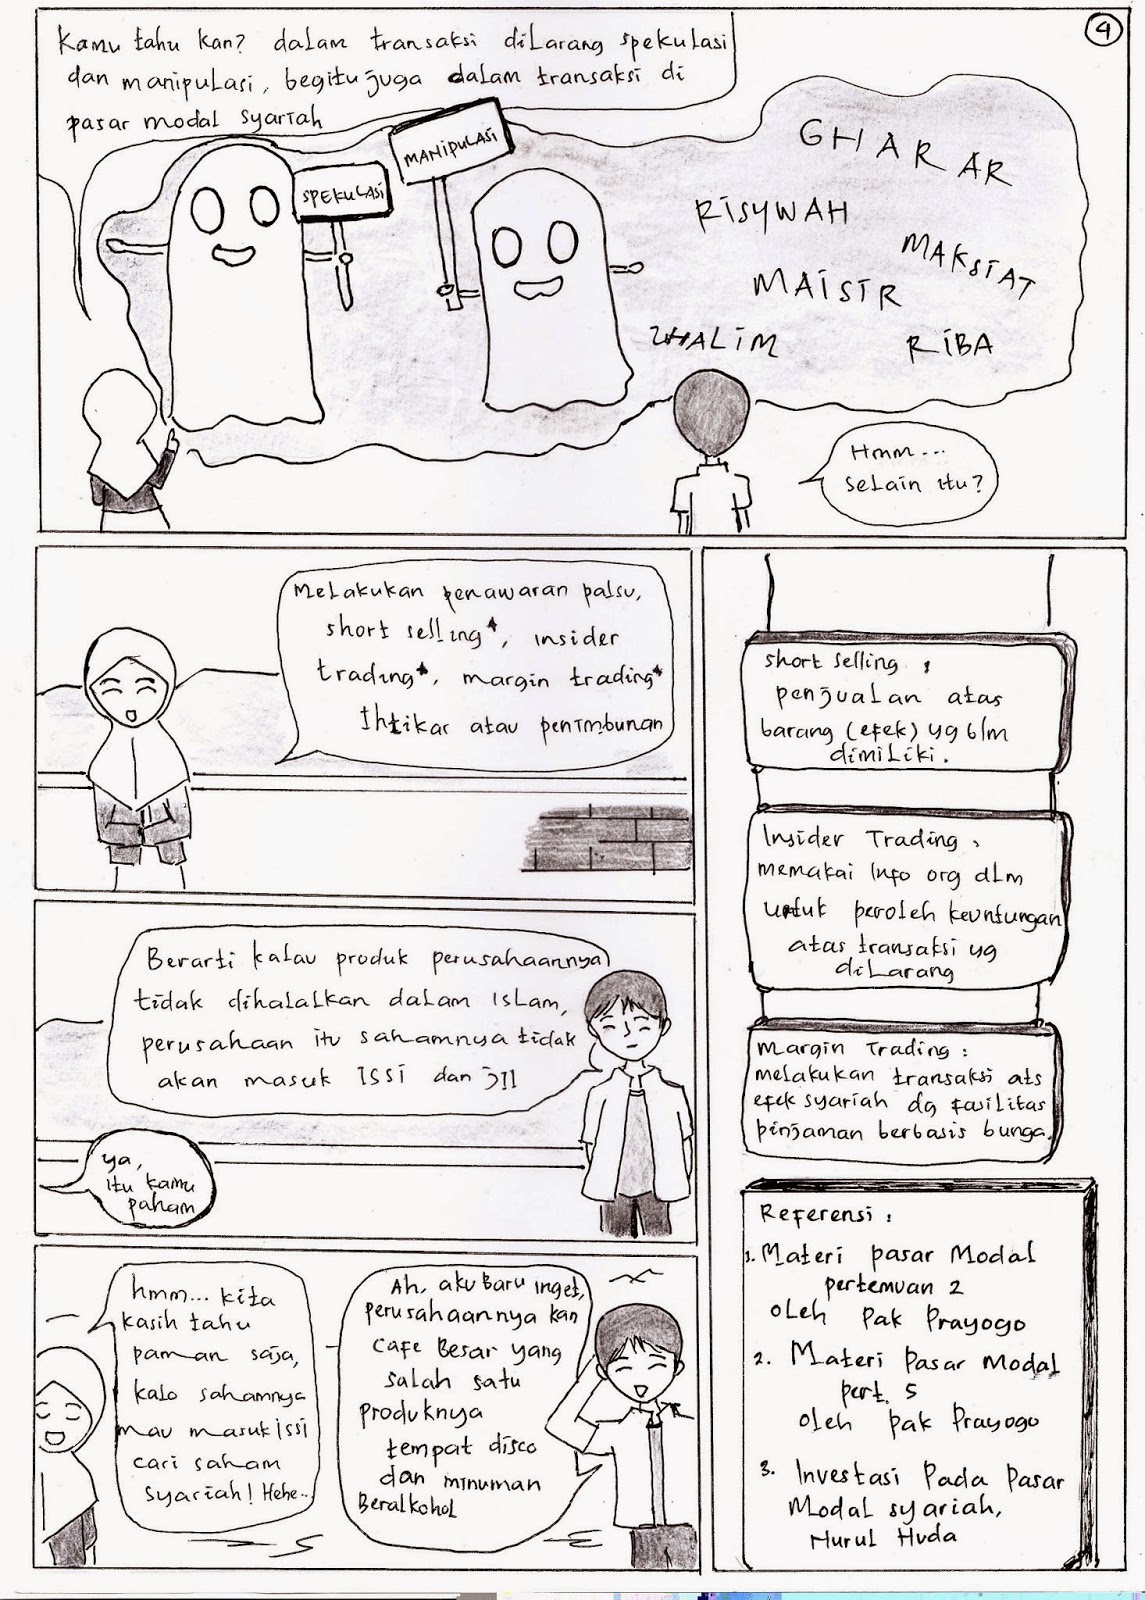 4
Kamu tahu kan? dalam transaksi dilarang spekulasi
dan manipulasi, begitu juga dalam transaksi di
pasar modal syariah
SPEKULASI
MANIPULASI
GHARAR
RISYWAH
MAKSIAT
MAISIR
ZHALIM
RIBA
Hmm...
selain itu?
Melakukan penawaran palsu,
short selling*, insider
trading*, margin trading*
Ihtikar atau penimbunan
Berarti kalau produk perusahaannya
tidak dihalalkan dalam Islam,
perusahaan itu sahamnya tidak
akan masuk ISSI dan JII
ya,
itu kamu
paham
hmm... kita
kasih tahu
paman saja,
kalo sahamnya
mau masuk ISSI
cari saham
syariah! Hehe..
Ah, aku baru inget,
perusahaannya kan
cafe Besar yang
salah satu
produknya
tempat disco
dan minuman
Beralkohol
short selling :
penjualan atas
barang (efek) yg blm
dimiliki.
Insider Trading :
memakai Info org dlm
untuk peroleh keuntungan
atas transaksi yg
dilarang
Margin Trading :
melakukan transaksi ats
efek syariah dg fasilitas
pinjaman berbasis bunga.
Referensi :
1. Materi pasar Modal
pertemuan 2
oleh Pak Prayogo
2. Materi Pasar Modal
pert. 5
oleh pak Prayogo
3. Investasi Pada Pasar
Modal syariah,
Nurul Huda